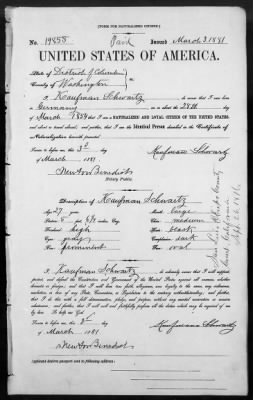 [FORM FOR NATURALIZED CITIZEN.]
No. 19455 Paid Issued March 3, 1881
UNITED STATES OF AMERICA.
State of District of Columbia
County of Washington
I, Kaufman Schwartz do swear that I was born
in Germany on or about the 28th day of
March 1854 that I am a NATURALIZED AND LOYAL CITIZEN OF THE UNITED STATES,
and about to travel abroad; and further, that I am the Identical Person described in the Certificate of
Naturalization herewith presented.
Sworn to before me, this 3d day
of March 1881.
Kaufmann Schwartz
Newton Benedict
Notary Public.
Description of Kaufman Schwartz
Age: 27 years Mouth: large
Stature: 5 feet inches, Eng. Chin: medium
Forehead: high Hair: black
Eyes: gray Complexion: dark
Nose: prominent Face: oval
I, Kaufman Schwartz do solemnly swear that I will support,
protect, and defend the Constitution and Government of the United States against all enemies, whether
domestic or foreign; and that I will bear true faith, allegiance, and loyalty to the same, any ordinance,
resolution, or law of any State, Convention, or Legislature to the contrary notwithstanding; and further,
that I do this with a full determination, pledge, and purpose, without any mental reservation or evasion
whatsoever; and further, that I will well and faithfully perform all the duties which may be required of me
by law: So help me God.
Sworn to before me, this 3d day
of March 1881
Kaufmann Schwartz
Newton Benedict
Applicant desires passport to be sent to following address:
San Luis Obispo County
Court, California